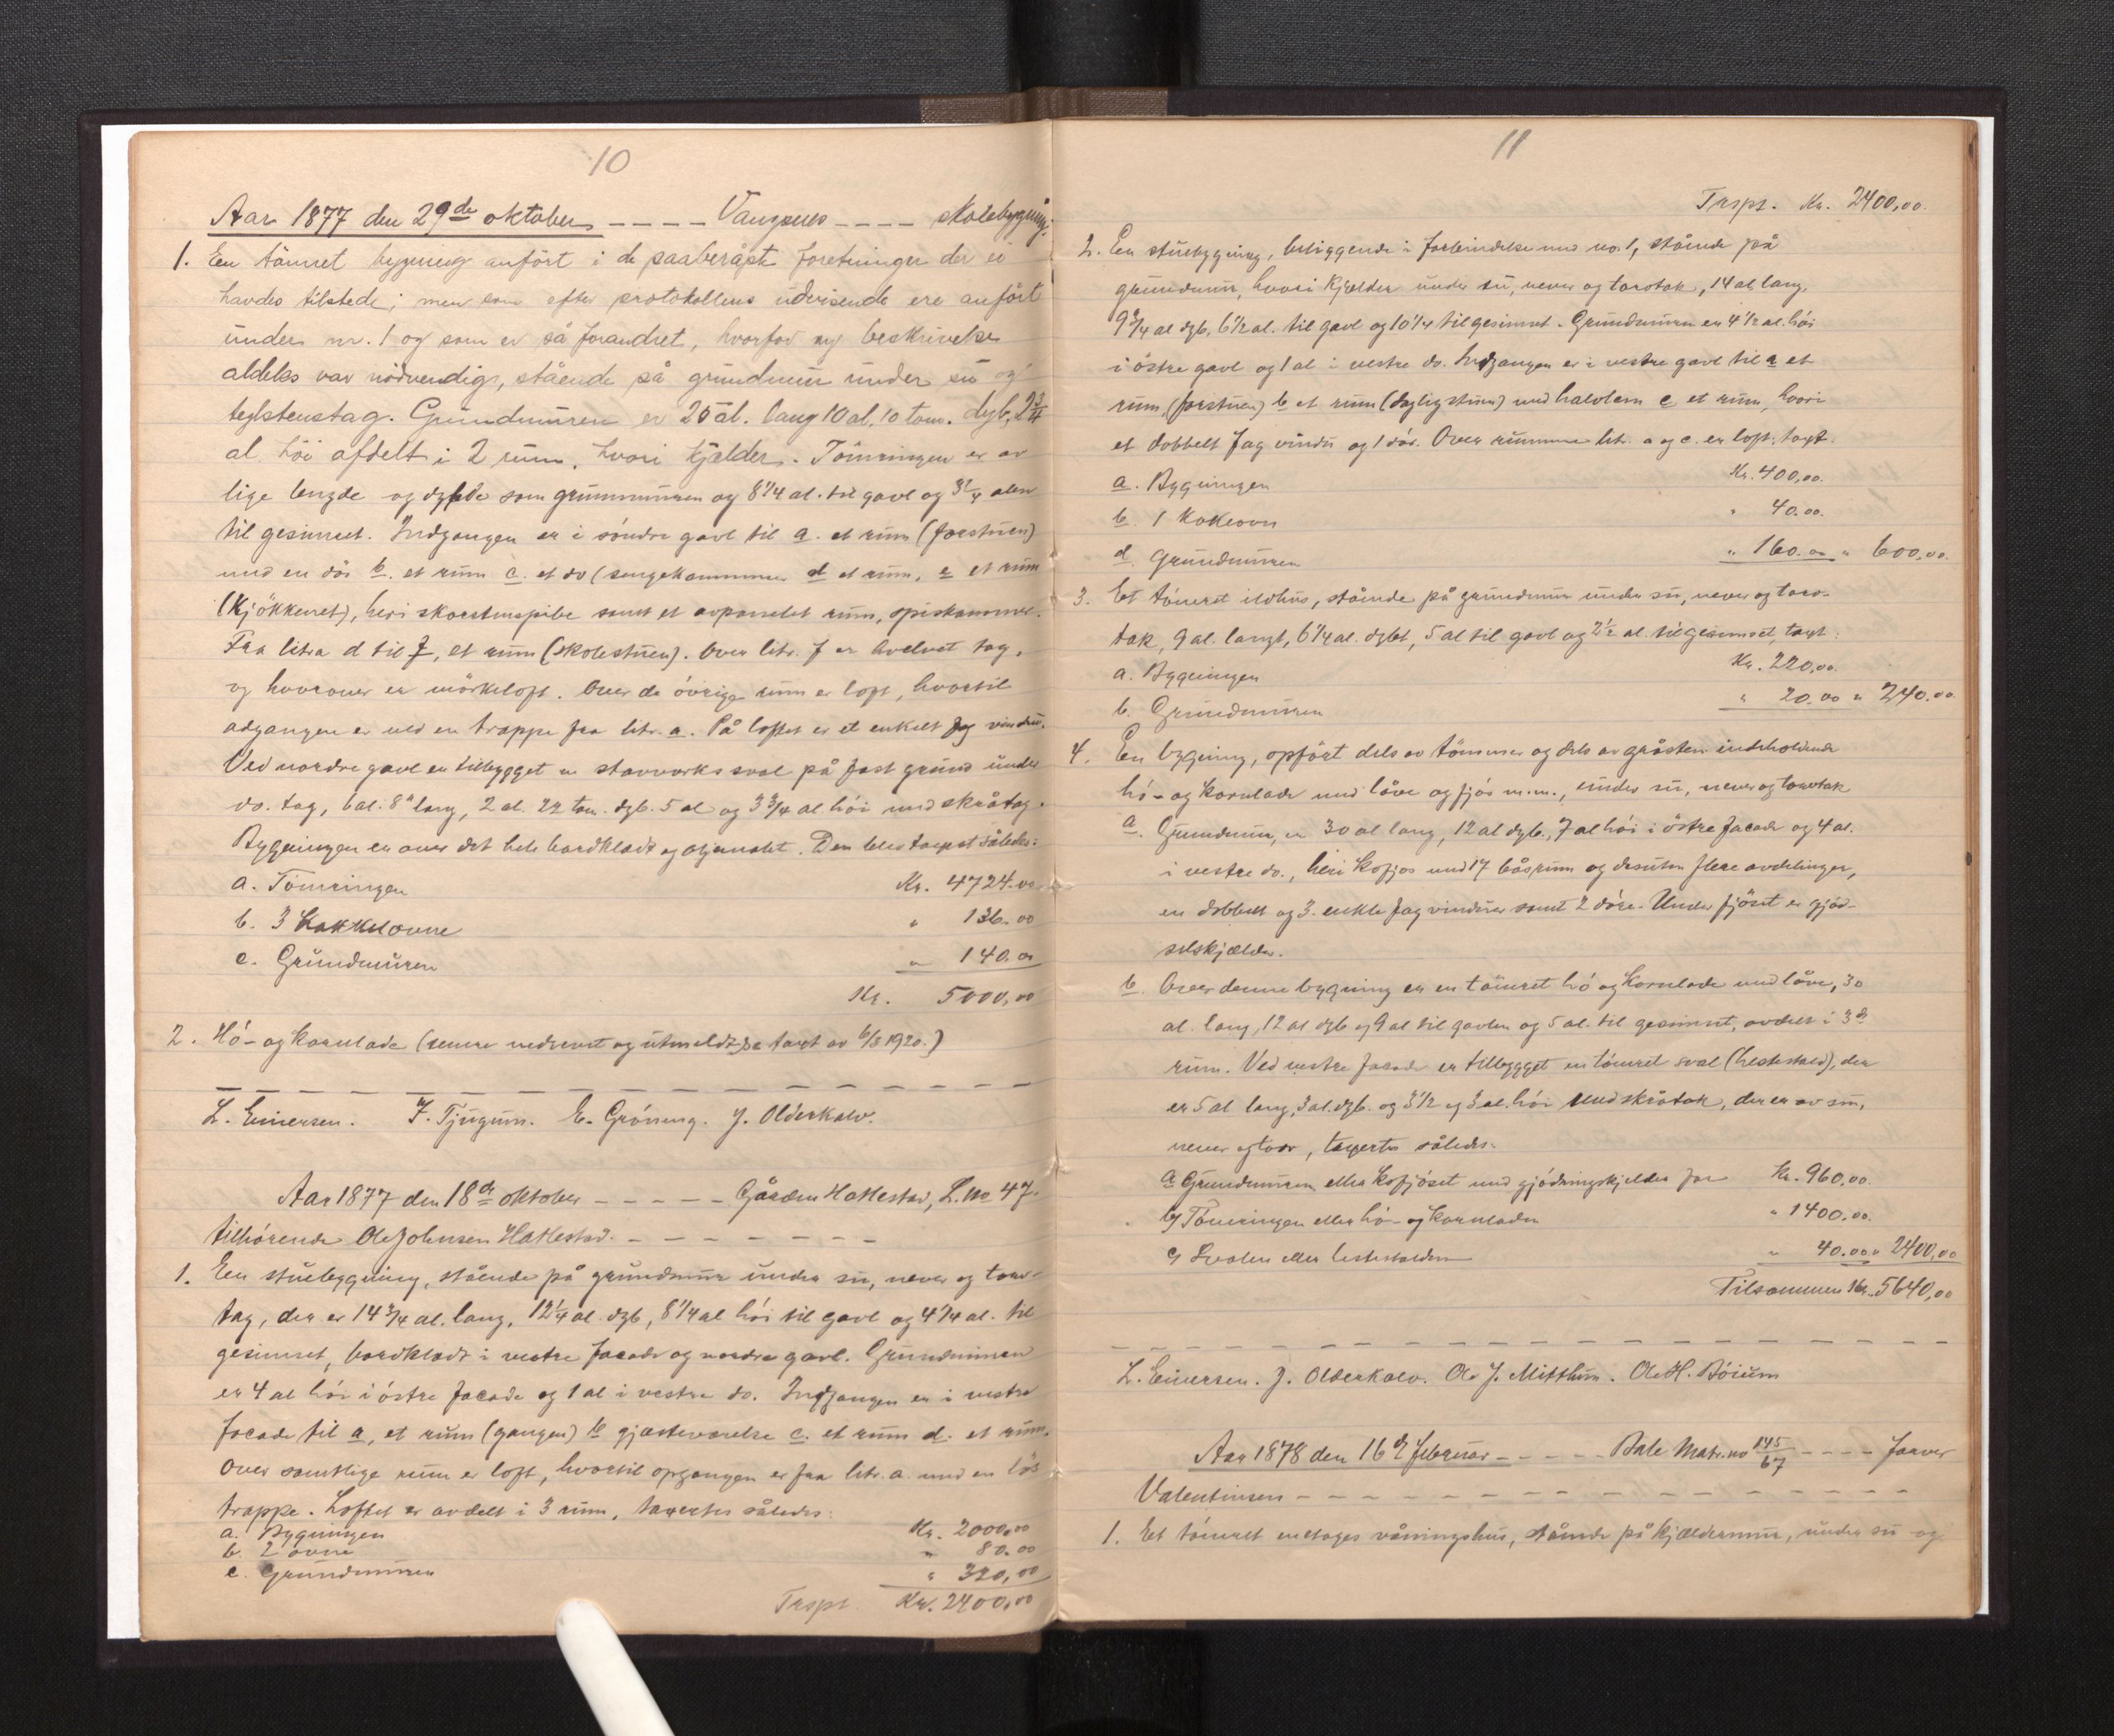 10
Aar 1877 den 29de oktober - - - - Vangsnes - - - - skolebygning.
1. En tömret bygning anfört i de paaberåpte foretninger der ei
havdes tilstede; men som efter protokollens udvisende ere anfört
under nr. 1 og som er så forandret, hvorfor ny beskrivelse
aldeles var nödvendig, stående på grundmur under su og
teglstenstag. Grundmuren er 25 al. lang 10 al. 10 tom. dyb, 2 3/4
al höi afdelt i 2 rum, hvori kjelder. Tömringen er av
lige lengde og dybde som grunnmuren og 8 1/4 al. til gavl og 3 1/4 alen
til gesimset. Indgangen er i söndre gavl til a. et rum (forstuen)
med en dör b. et rum c. et do (sengekammmer d et rum, e et rum
(kjökkenet), heri skorstenspibe samt et avpanelet rum, spiskammer.
Fra litra d til f, et rum (skolestuen). Over litr. f er hvelvet tag,
og hvorover er mörkeloft. Over de övrige rum er loft, hvortil
adgangen er ved en trappe fra litr. a. På loftet er et enkelt fag vindu.
Ved nordre gavl er tilbygget en stavverks sval på fast grund under
do. tag, 6 al. 8" lang, 2 al. 22 tom. dyb. 5 al og 3 3/4 al höi med skråtag.
Bygningen er over det hele bordklædt og oljemalet. Den blev taxeret således:
a. Tömringen Kr. 4724.00
b. 3 kakkelovne " 136.00
c. Grundmuren " 140.00
Kr. 5000,00
2. Hö- og kornlade (senere nedrevet og utmeldt, se taxt av 6/3 1920.)
L. Einersen. J. Tjugum. E. Gröneng. J. Olderkalv.
Aar 1877 den 18de oktober - - - - - Gården Hatlestad, L. no 47.
tilhörende Ole Johnsen Hatlestad. - - - - - - -
1. En stuebygning, stående på grundmur under su, never og torv-
tag, der er 14 3/4 al. lang, 12 1/4 al. dyb, 8 1/4 al höi til gavl og 4 1/4 al. til
gesimset, bordklædt i vestre facade og nordre gavl. Grundmuren
er 4 al höi i östre facade og 1 al i vestre do. Indgangen er i vestre
facade til a, et rum (gangen) b gjesteværelse c. et rum d. et rum.
Over samtlige rum er loft, hvortil opgangen er fra litr. a. med en lös
trappe. Loftet er avdelt i 3 rum, taxertes således:
a. Bygningen Kr. 2000,00
b. 2 ovne " 80.00
c. Grundmuren " 320,00
Trspt. Kr. 2400,00
11
Trspt. Kr. 2400,00.
2. En stuebygning, beliggende i forbindelse med no. 1, stående på
grundmur, hvori kjelder under su, never og torvtak, 14 al lang,
9 3/4 al dyb, 6 1/2 al. til gavl og 10 1/4 til gesimset. Grundmuren er 4 1/2 al. höi
i östre gavl og 1 al i vestre do. Indgangen er i vestre gavl til a et
rum, (forstuen) b et rum (dagligstuen) med halvlem c et rum, hvori
et dobbelt fag vindu og 1 dör. Over rummene litr. a og c. er loft, taxt:
a. Bygningen Kr. 400,00.
b. 1 Kokeovn " 40.00.
d. Grundmuren " 160.00 " 600,00.
3. Et tömret ildhus, stående på grundmur under su, never og torv-
tak, 9 al. langt, 6 1/4 al. dybt, 5 al til gavl og 2 1/2 al. til gesimset, taxt:
a. Bygningen Kr. 220,00.
b. Grundmuren " 20.00 " 240.00
4. En bygning, opfört dels av tömmer og dels av gråsten indeholdende
hö- og kornlade med låve og fjös m.m., under su, never og torvtak
a. Grundmur, er 30 al lang, 12 al dyb, 7 al höi i östre facade og 4 al.
i vestre do., heri kofjös med 17 båsrum og desuten flere avdelinger,
en dobbelt og 3. enkle fag vinduer samt 2 döre. Under fjöset er gjöd-
selskjælder.
b. Over denne bygning er en tömret hö og kornlade med låve, 30
al. lang, 12 al dyb og 9 al til gavlen og 5 al. til gesimset, avdelt i 3de
rum. Ved vestre facade er tilbygget en tömret sval (hestestald), der
er 5 al lang, 3 al. dyb. og 3 1/2 og 3 al. höi med skråtak, der er av su,
never og torv, taxertes således:
a Grundmuren eller kofjöset med gjödningskjelder for Kr. 960,00.
b) Tömringen eller hö- og kornladen " 1400.00.
c) Svalen eller hestestalden " 40.00 " 2400,00
Tilsammen Kr. 5640,00
L. Einersen. J. Olderkalv. Ole J. Mitthun. Ole H. Böium
Aar 1878 den 16de februar - - - - - Bale Matr. no 145/67 - - - - Jaaver
Valentinsen - - - - - - - - - - - - - - -
1. Et tömret enetages våningshus, stående på kjældermur, under su og